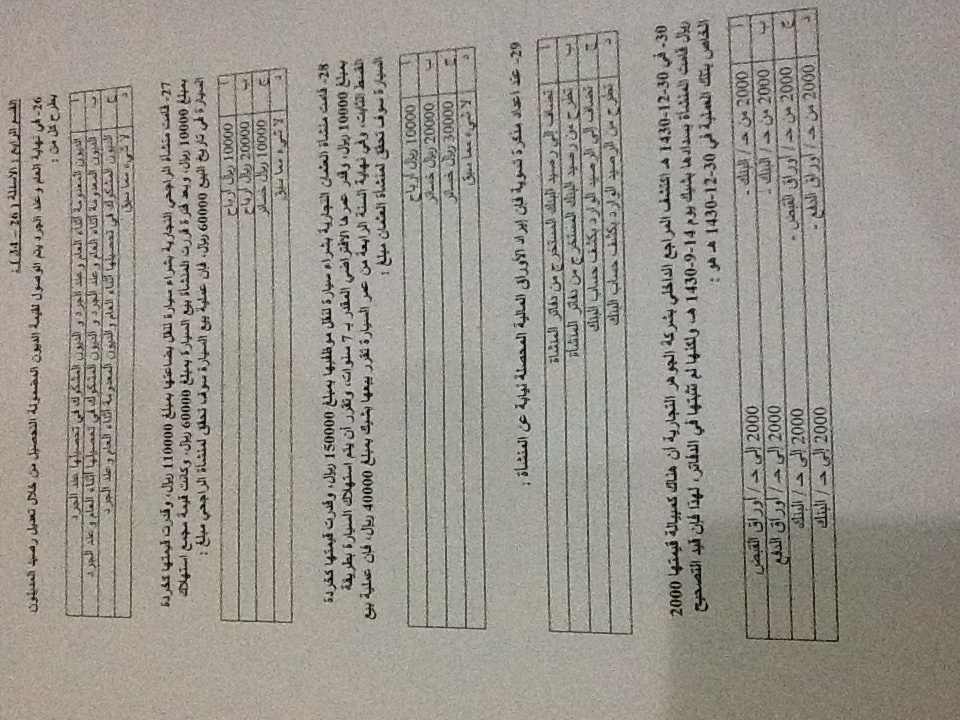 القسم الرابع ( الاسئلة ( 26 – 34 ) :
26- في نهاية العام وعند الجرد يتم الوصول لقيمة الديون المضمونة التحصيل من خلال تعديل رصيد المدينون
بطرح كل من :
أ الديون المعدومة أثناء العام وعند الجرد و الديون المشكوك في تحصيلها عند الجرد
ب الديون المعدومة أثناء العام وعند الجرد و الديون المشكوك في تحصيلها أثناء العام وعند الجرد
ج الديون المشكوك في تحصيلها أثناء العام والديون المعدومة أثناء العام وعند الجرد
د لا شيء مما سبق
27- قامت منشأة الراجحي التجارية بشراء سيارة لنقل بضاعتها بمبلغ 110000 ريال، وقدرت قيمتها كخردة
بمبلغ 10000 ريال، وبعد فترة قررت المنشأة بيع السيارة بمبلغ 60000 ريال، وكانت قيمة مجمع استهلاك
السيارة في تاريخ البيع 60000 ريال، فإن عملية بيع السيارة سوف تحقق لمنشأة الراجحي مبلغ :
أ 10000 ريال أرباح
ب 20000 ريال أرباح
ج 10000 ريال خسائر
د لا شيء مما سبق
28- قامت منشأة العثمان التجارية بشراء سيارة لنقل موظفيها بمبلغ 150000 ريال، وقدرت قيمتها كخردة
بمبلغ 10000 ريال، وقدر عمرها الافتراضي المقدر بـ 7 سنوات، وتقرر أن يتم استهلاك السيارة بطريقة
القسط الثابت، وفي نهاية السنة الرابعة من عمر السيارة تقرر بيعها بشيك بمبلغ 40000 ريال، فإن عملية بيع
السيارة سوف تحقق لمنشأة العثمان مبلغ :
أ 10000 ريال أرباح
ب 20000 ريال خسائر
ج 30000 ريال خسائر
د لا شيء مما سبق
29- عند اعداد مذكرة تسوية فإن إيراد الأوراق المالية المحصلة نيابة عن المنشأة :
أ تضاف إلى رصيد البنك المستخرج من دفاتر المنشأة
ب تطرح من رصيد البنك المستخرج من دفاتر المنشأة
ج تضاف إلى الرصيد الوارد بكشف حساب البنك
د تطرح من الرصيد الوارد بكشف حساب البنك
30- في 30-12-1430 هـ اكتشف المراجع الداخلي بشركة الجوهر التجارية أن هناك كمبيالة قيمتها 2000
ريال قامت المنشأة بسدادها بشيك يوم 14-9-1430 هـ، ولكنها لم تثبتها في الدفاتر، لهذا فإن قيد التصحيح
الخاص بتلك العملية في 30-12-1430 هـ هو :
أ 2000 من حـ / البنك - 2000 إلى حـ / أوراق القبض
ب 2000 من حـ / البنك - 2000 إلى حـ / أوراق الدفع
ج 2000 من حـ / أوراق القبض - 2000 إلى حـ / البنك
د 2000 من حـ / أوراق الدفع - 2000 إلى حـ / البنك